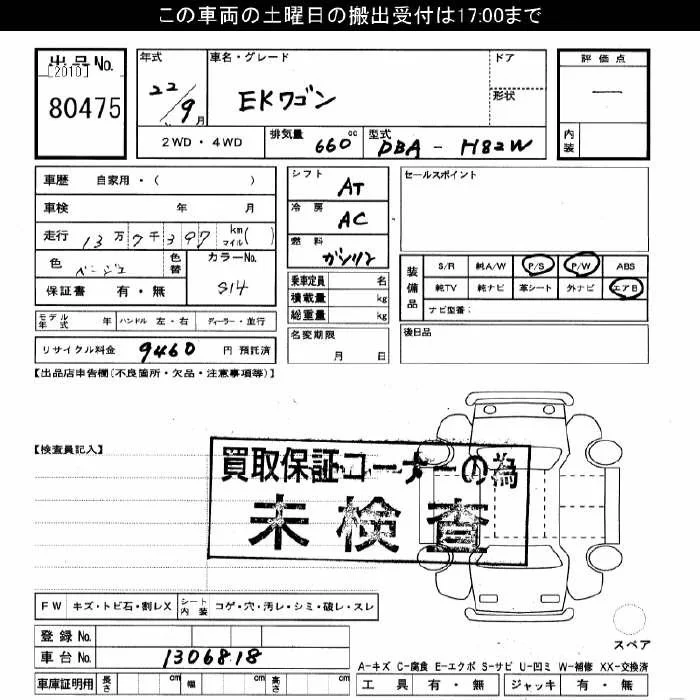 この車両の土曜日の搬出受付は17:00まで
出品No.
[2010]
80475
年式
22/9月
車名・グレード
EKワゴン
ドア
形状
評価点
—
内装
2WD・4WD
排気量
660cc
型式
DBA-H82W
車歴 自家用・( )
車検 年 月
走行 13万7千397 km マイル( )
色 ベージュ 色替
カラーNo.
S14
保証書 有・無
モデル年式 年 ハンドル 左・右 ディーラー・並行
リサイクル料金 9460 円 預託済
シフト AT
冷房 AC
燃料 ガソリン
乗車定員 名
積載量 kg
総重量 kg
名変期限
月 日
セールスポイント
装備品
S/R 純A/W P/S P/W ABS
純TV 純ナビ 革シート 外ナビ エアB
ナビ型番:
後日品
【出品店申告欄(不良箇所・欠品・注意事項等)】
【検査員記入】
買取保証コーナーの為
未検査
FW キズ・トビ石・割レX シート内装 コゲ・穴・汚レ・シミ・破レ・スレ
登録No.
車台No. 1306818
車庫証明用 長さ cm 幅 cm 高さ cm
スペア
A-キズ C-腐食 E-エクボ S-サビ U-凹ミ W-補修 XX-交換済
工具 有・無 ジャッキ 有・無